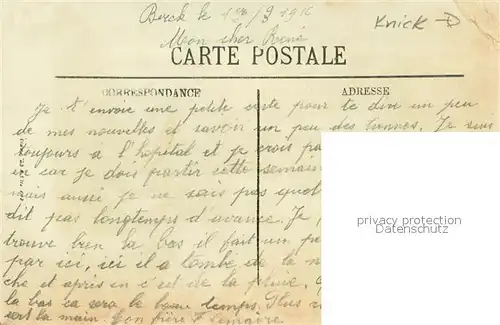 Berck le 1er/3 1916
Knick
Mon cher René
CARTE POSTALE
CORRESPONDANCE
ADRESSE
Je t'envoie une petite carte pour te dire un peu
de mes nouvelles et savoir un peu des tiennes. Je suis
toujours à l'hopital et je crois pas
car je dois partir cette semain
mais aussi je ne sais pas
dit pas longtemps d'avance. Je
trouve bien la bas il fait un
par ici, ici il a tombé de la
che et après ci c'est de la pluie.
la bas ca sera le beau temps. Plus
la main. Ton frère
privacy protection
Datenschutz